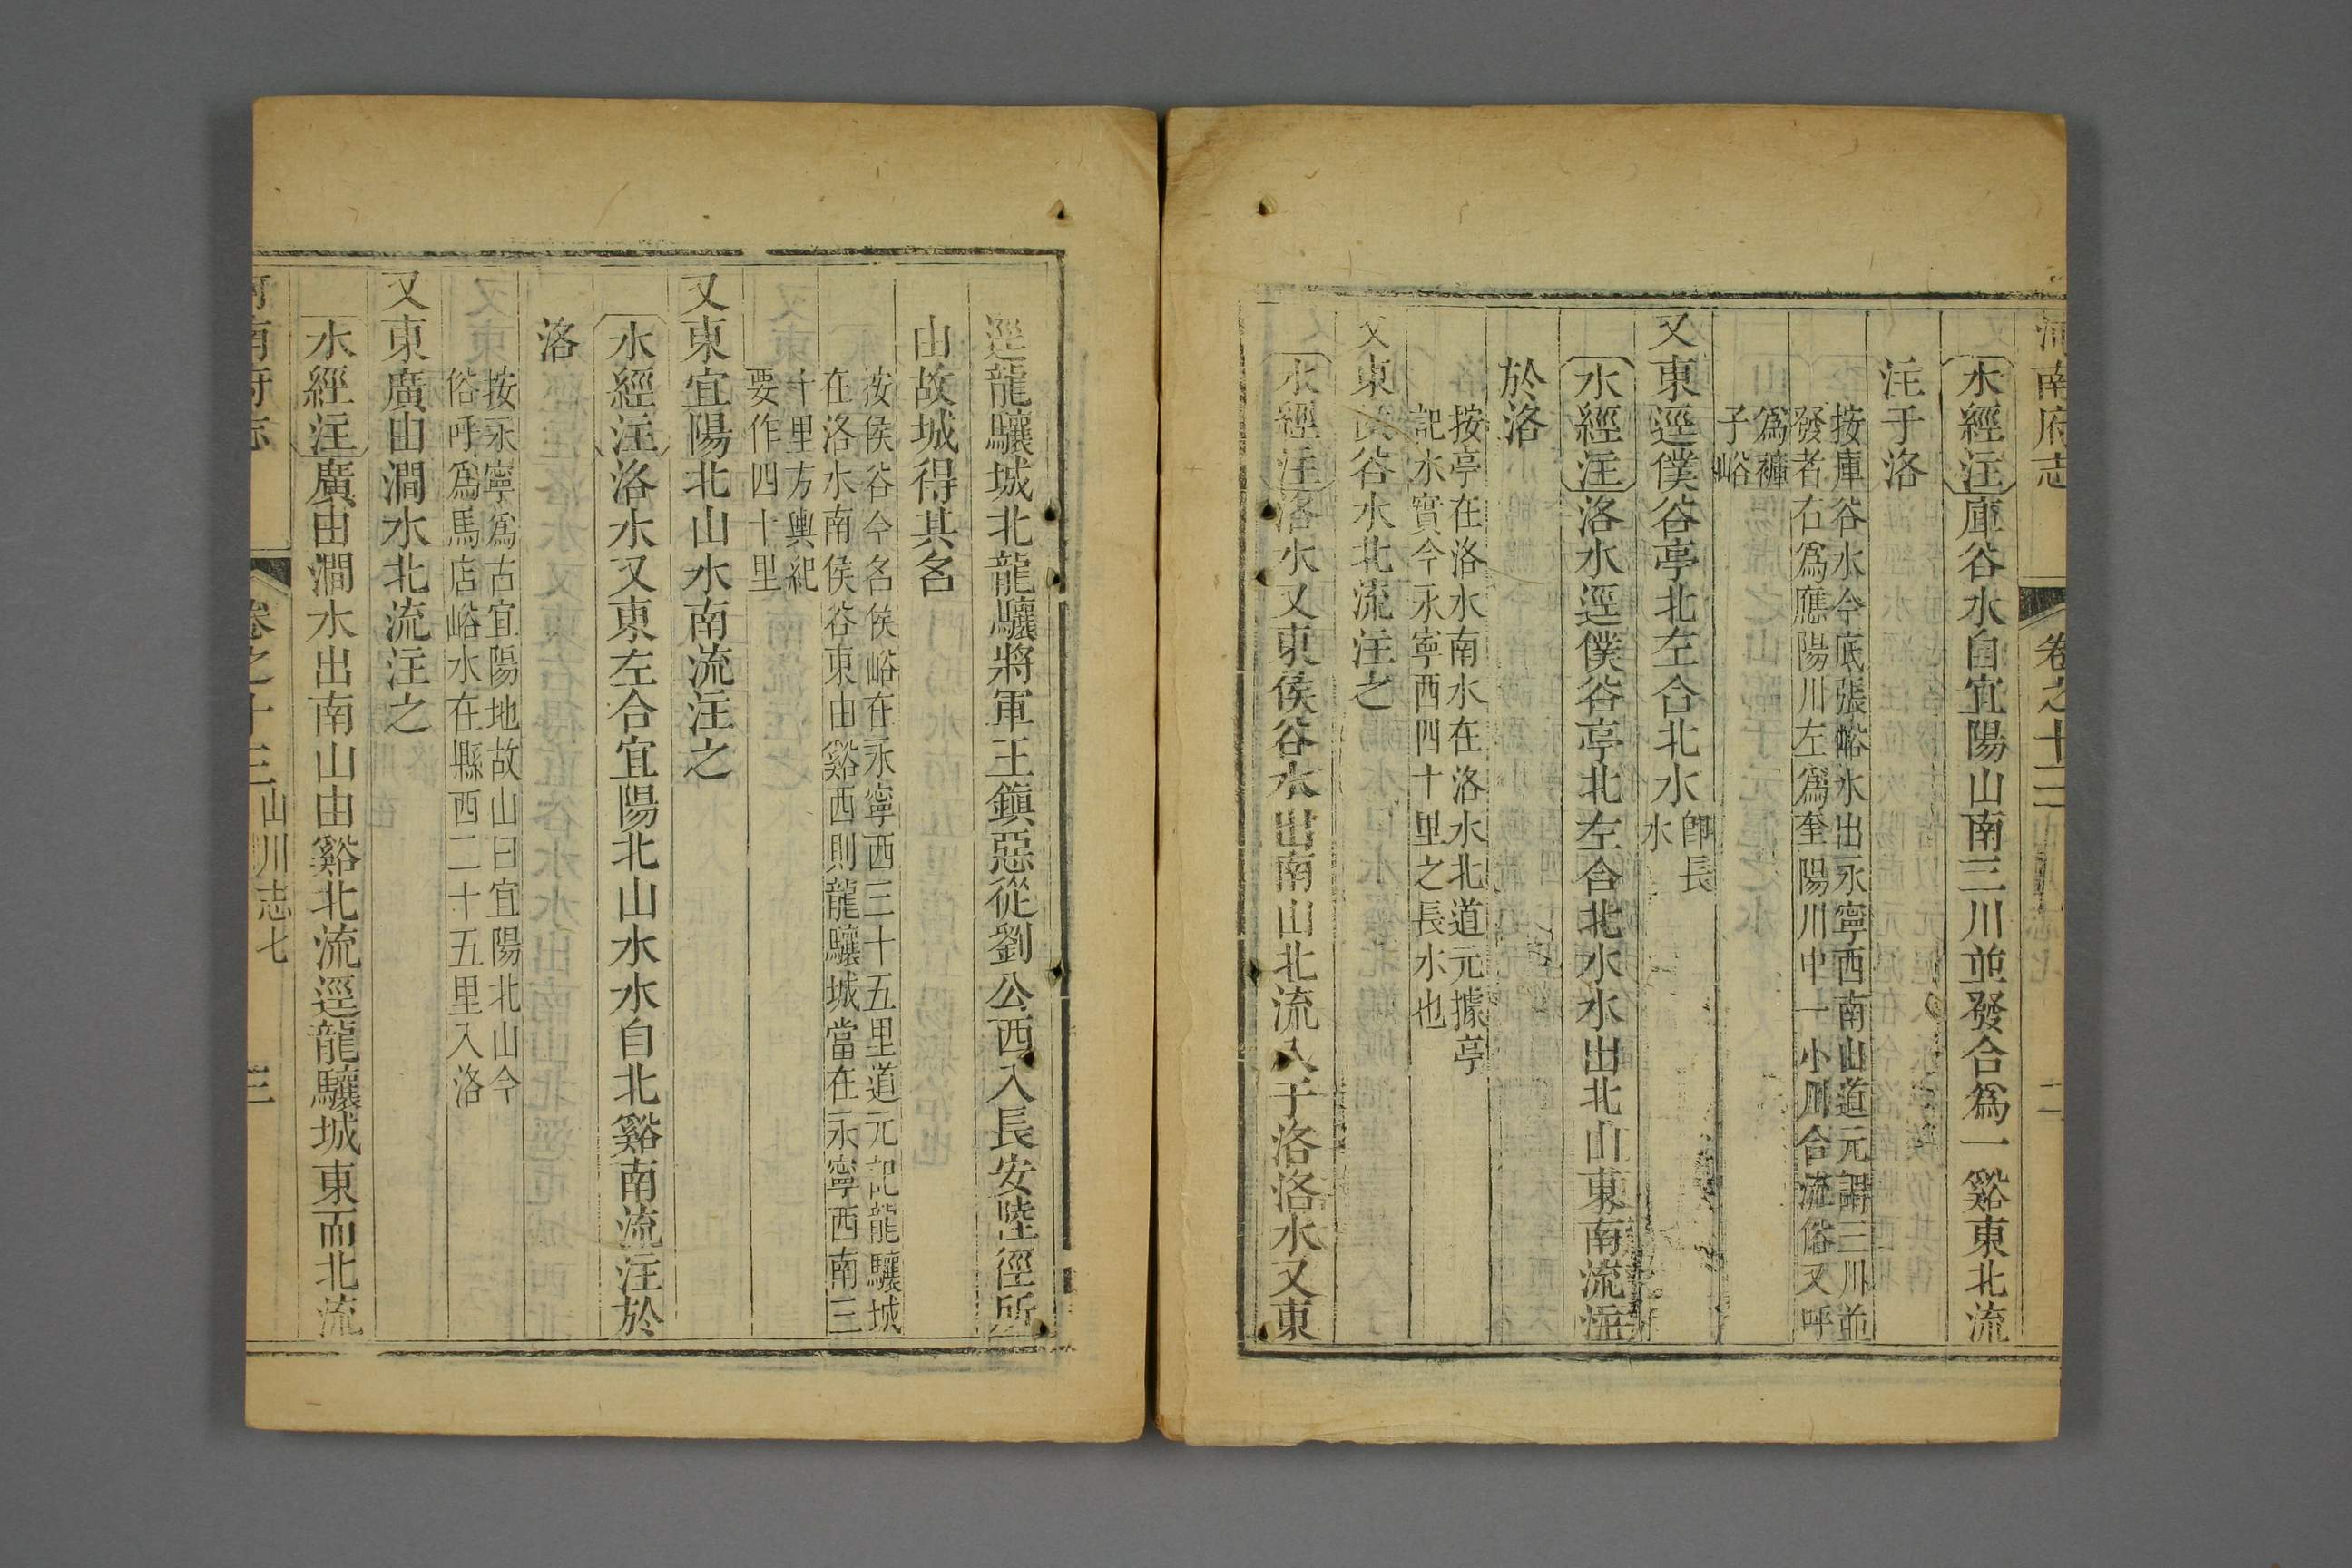 河南府志 卷之十三 山川志七 二
水經注庫谷水自宜陽山南三川並發合爲一谿東北流
注于洛
按庫谷水今底張峪水出永寧西南山道元謂三川並
發者右爲應陽川左爲奎陽川中一小川合流俗又呼
爲褲
子峪
又東逕僕谷亭北左合北水卽長
水
水經注洛水逕僕谷亭北左合北水水出北山東南流注
於洛
按亭在洛水南水在洛水北道元據亭
記水實今永寧西四十里之長水也
又東侯谷水北流注之
水經注洛水又東侯谷水出南山北流入于洛洛水又東
逕龍驤城北龍驤將軍王鎮惡從劉公西入長安陸徑所
由故城得其名
按侯谷今名侯峪在永寧西三十五里道元記龍驤城
在洛水南侯谷東由谿西則龍驤城當在永寧西南三
十里方輿紀
要作四十里
又東宜陽北山水南流注之
水經注洛水又東左合宜陽北山水水自北谿南流注於
洛
按永寧爲古宜陽地故山曰宜陽北山今
俗呼爲馬店峪水在縣西二十五里入洛
又東廣由澗水北流注之
水經注廣由澗水出南山由谿北流逕龍驤城東而北流
河南府志 卷之十三 山川志七 三